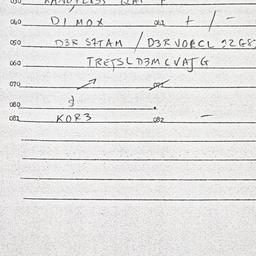 040 DIMOX 042 + / -
050 D3R S7TAM / D3R VORCL 22G8
060 TRETSLD3MCVATG
070 071
080
081 KOR3 082 -